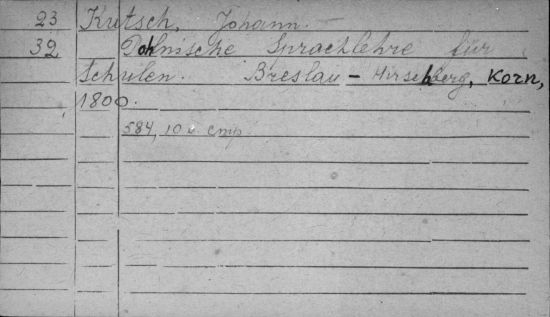 23 Kutsch, Johann.
32 Pohlnische Sprachlehre für
Schulen. Breslau - Hirschberg, Korn,
1800.
584, 10 u cmp.